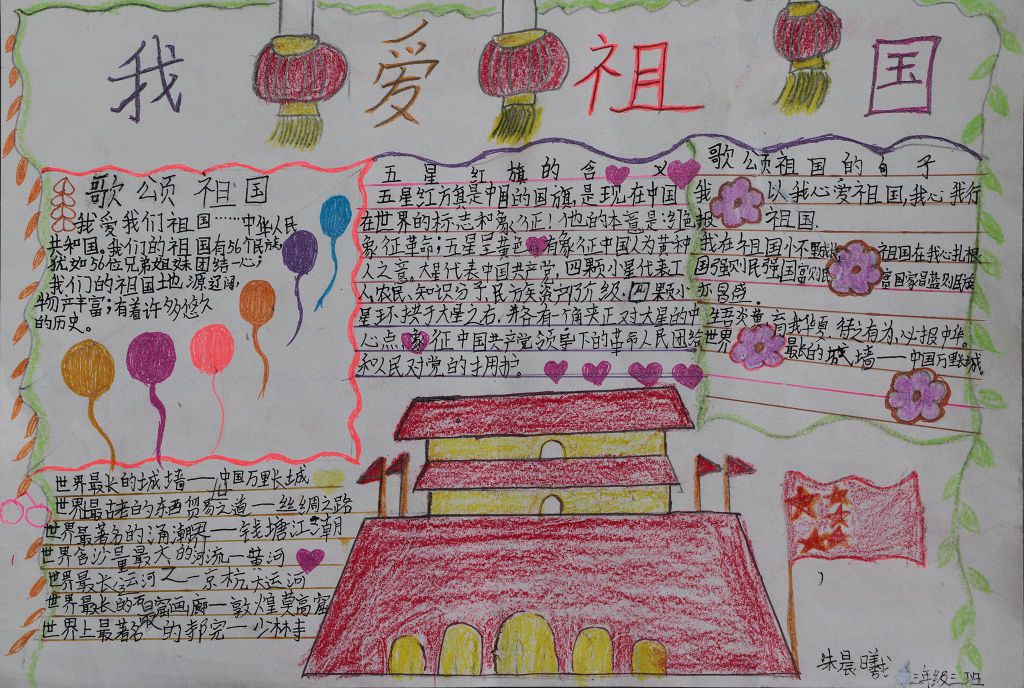 我爱祖国
歌颂祖国
我爱我们祖国……中华人民
共和国。我们的祖国有56个民族,
犹如56位兄弟姐妹团结一心;
我们的祖国土地辽阔,
物产丰富;有着许多悠久
的历史。
五星红旗的含义
五星红方旗是中国的国旗,是现在中国
在世界的标志和象征!他的本意是:红色
象征革命;五星呈黄色,有象征中国人为黄种
人之意。大星代表中国共产党,四颗小星代表工
人,农民,知识分子,民族资产阶级,四颗小
星环拱于大星之右,并各有一个角尖正对大星的中
心点,象征中国共产党领导下的革命人民团结
和人民对党的拥护。
歌颂祖国的句子
我 以我心爱祖国,我心我行
报 祖国.
我在祖国小不 祖国在我心扎根
国强则民强国富则民 富国家昌盛则民族
亦昌盛。
吾炎黄 有我华夏 待之有为,以报中华。
世界 最长的城墙——中国万里长城。
世界最长的城墙——中国万里长城
世界最古老的东西贸易之道——丝绸之路
世界最著名的涌潮界—钱塘江潮
世界含沙量最大的河流—黄河
世界最长运河之一京杭大运河
世界最长的石窟画廊—敦煌莫高窟
世界上最著名的寺院—少林寺
朱晨曦
三年级三班